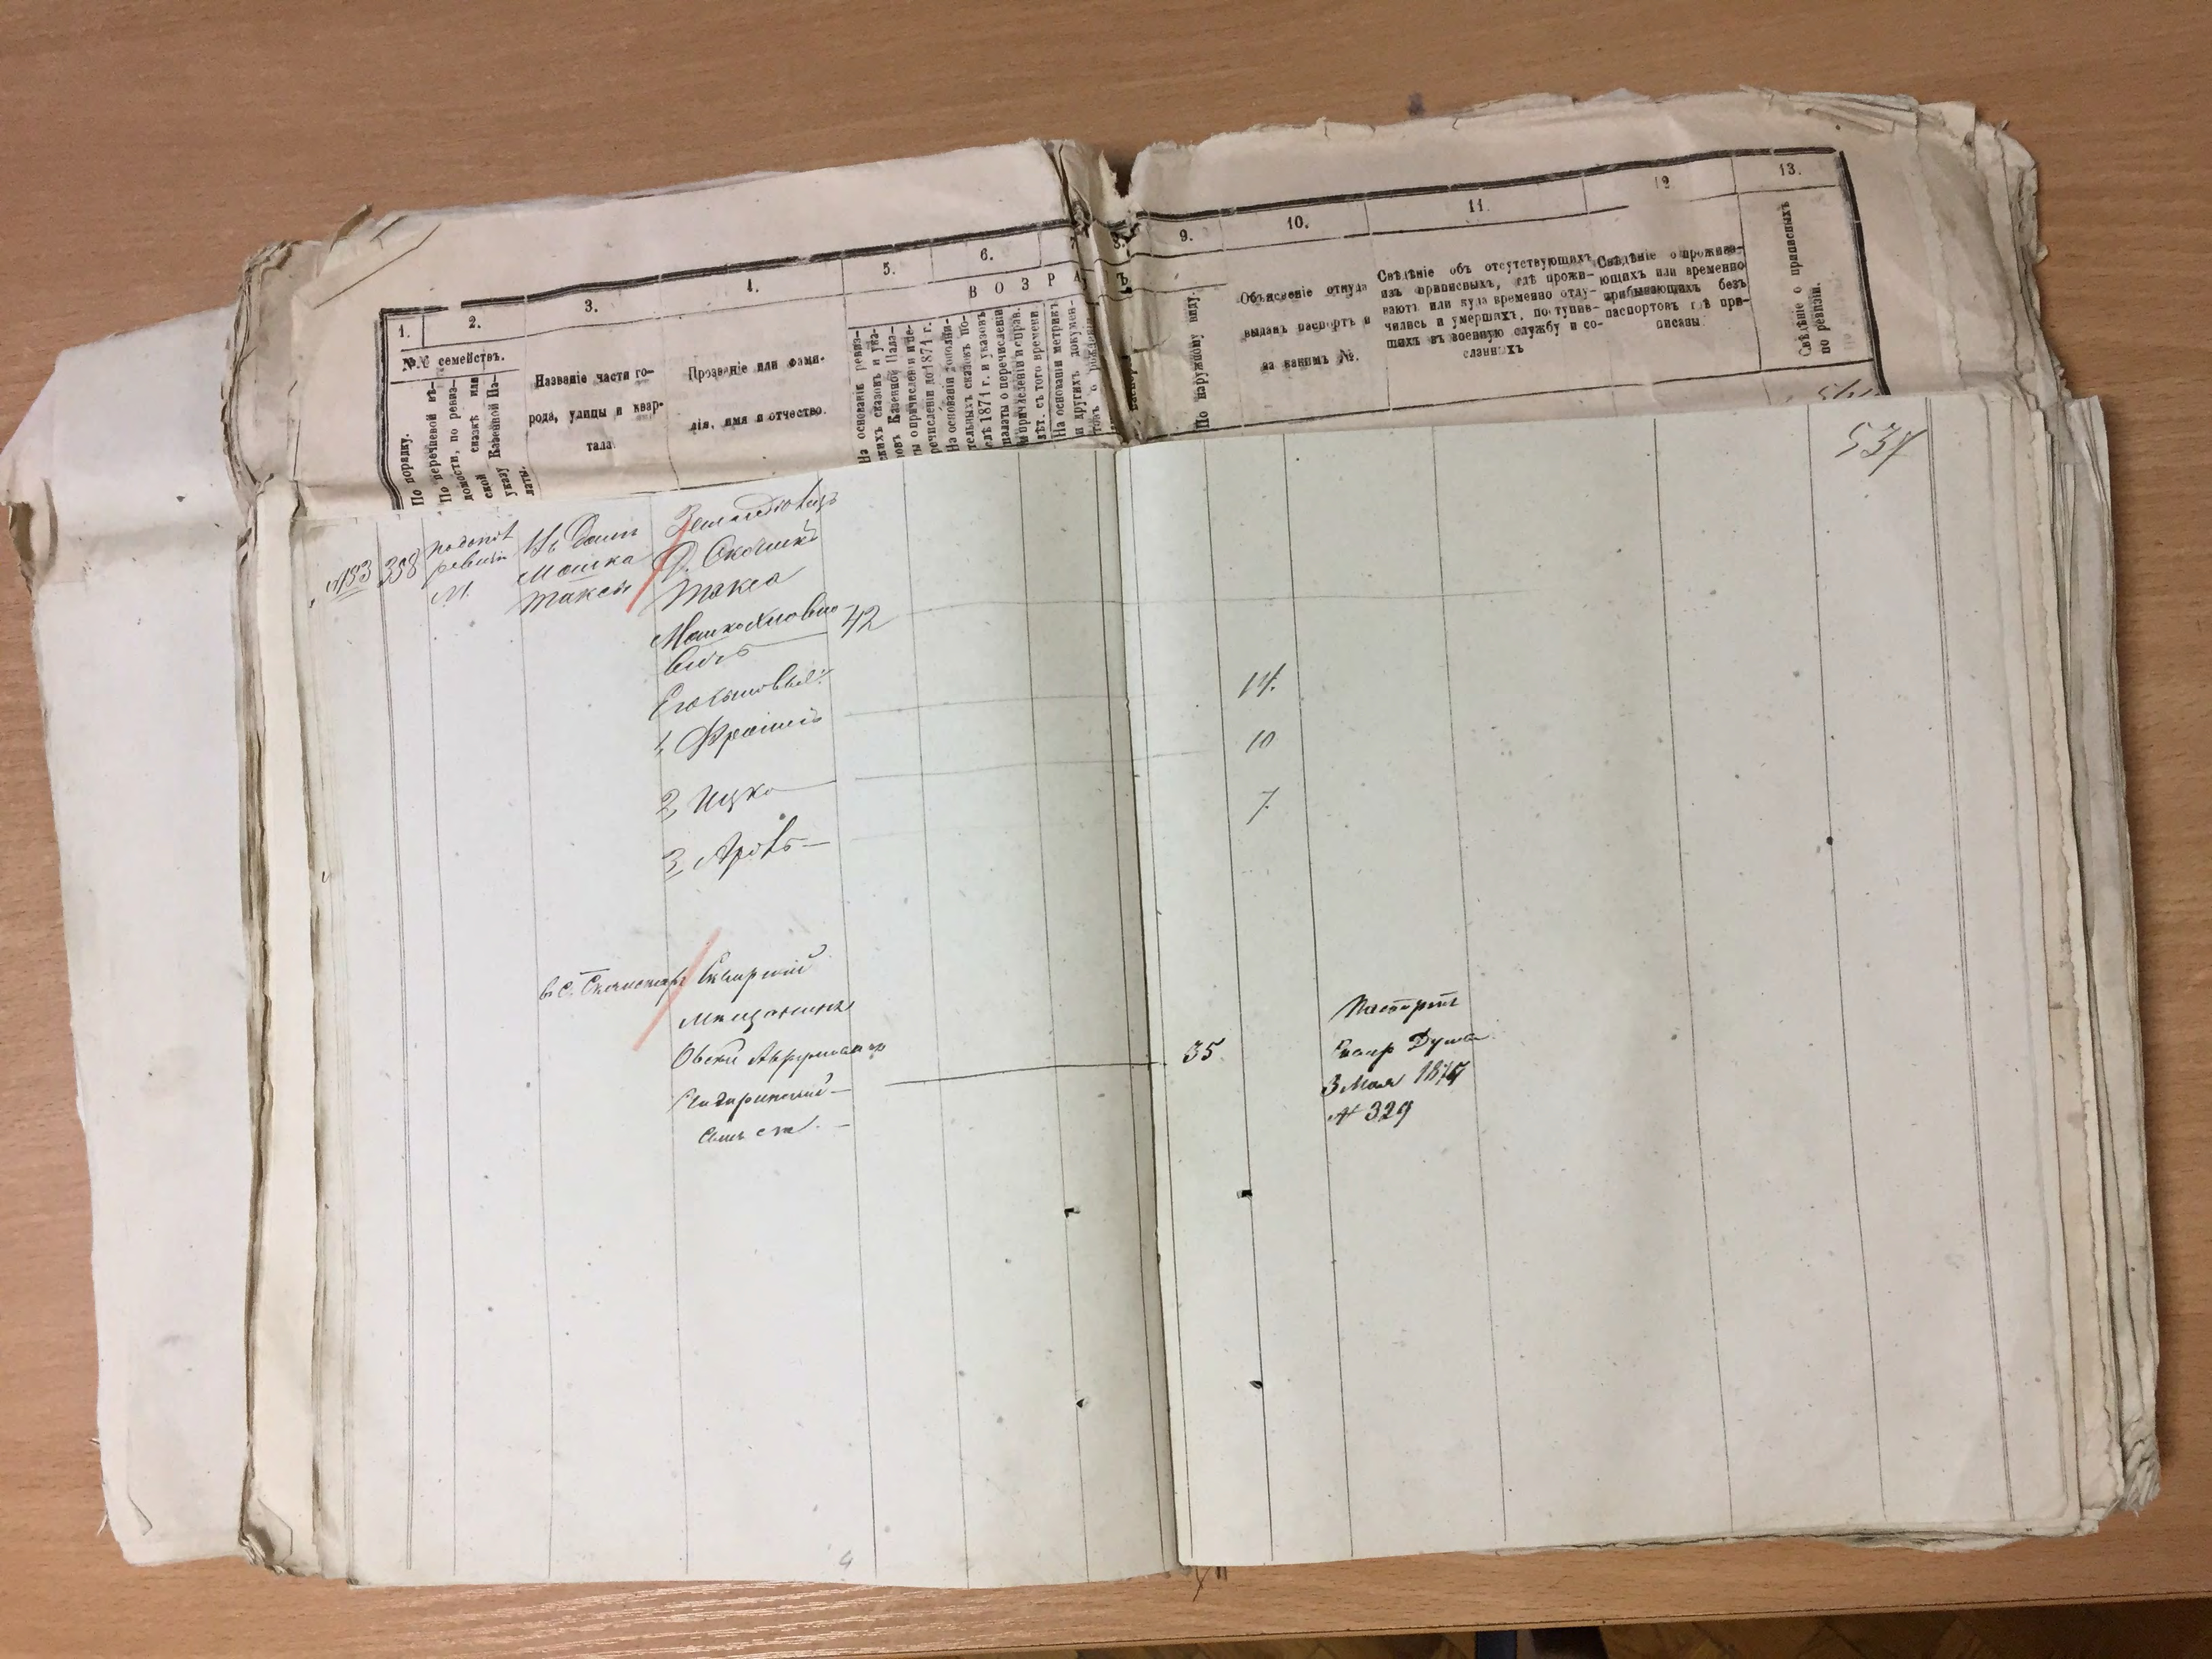 1.
2.
3.
4.
5.
6.
8.
9.
10.
11.
12
13.
В О З Р А
Ъ
№№ семействъ.
По порядку.
По перечневой вѣ-
домости, по ревиз-
ской сказкѣ или
указу Казенной Па-
латы.
Названіе части го-
рода, улицы и квар-
тала.
Прозваніе или фами-
лія, имя и отчество.
На основаніи ревиз-
скихъ сказокъ и ука-
зовъ Казенной Пала-
ты о причисленіи и пе-
речисленіи до 1874 г.
На основаніи дополни-
тельныхъ сказокъ по-
слѣ 1874 г. и указовъ
палаты о перечисленіи
и причисленіи и справ.
лѣт. съ того времени.
На основаніи метрикъ
и другихъ докумен-
товъ о рожденіи
По наружному виду.
Объясненіе откуда
выданъ паспортъ и
за какимъ №.
Свѣдѣніе объ отсутствующихъ
изъ приписныхъ, гдѣ прожи-
ваютъ или куда временно отлу-
чились и умершихъ, поступив-
шихъ въ военную службу и со-
сланныхъ
Свѣдѣніе о прожива-
ющихъ или временно
прибывающихъ безъ
паспортовъ гдѣ при-
писаны
Свѣдѣніе о приписныхъ
по ревизіи.
537
№193 398
ревизіи
Въ Домѣ
Мошка
Таксы
Д. Скочищ
Такса
Мошкохновно
вичъ 42
Его сыновья:
1, Фроимъ 14.
2, Ицко 10
3, Аронъ 7.
Сквирский
мещанинъ
Овсей Авруманъ 35.
Паспортъ
Сквир Дума
3 Мая 1877
№ 329